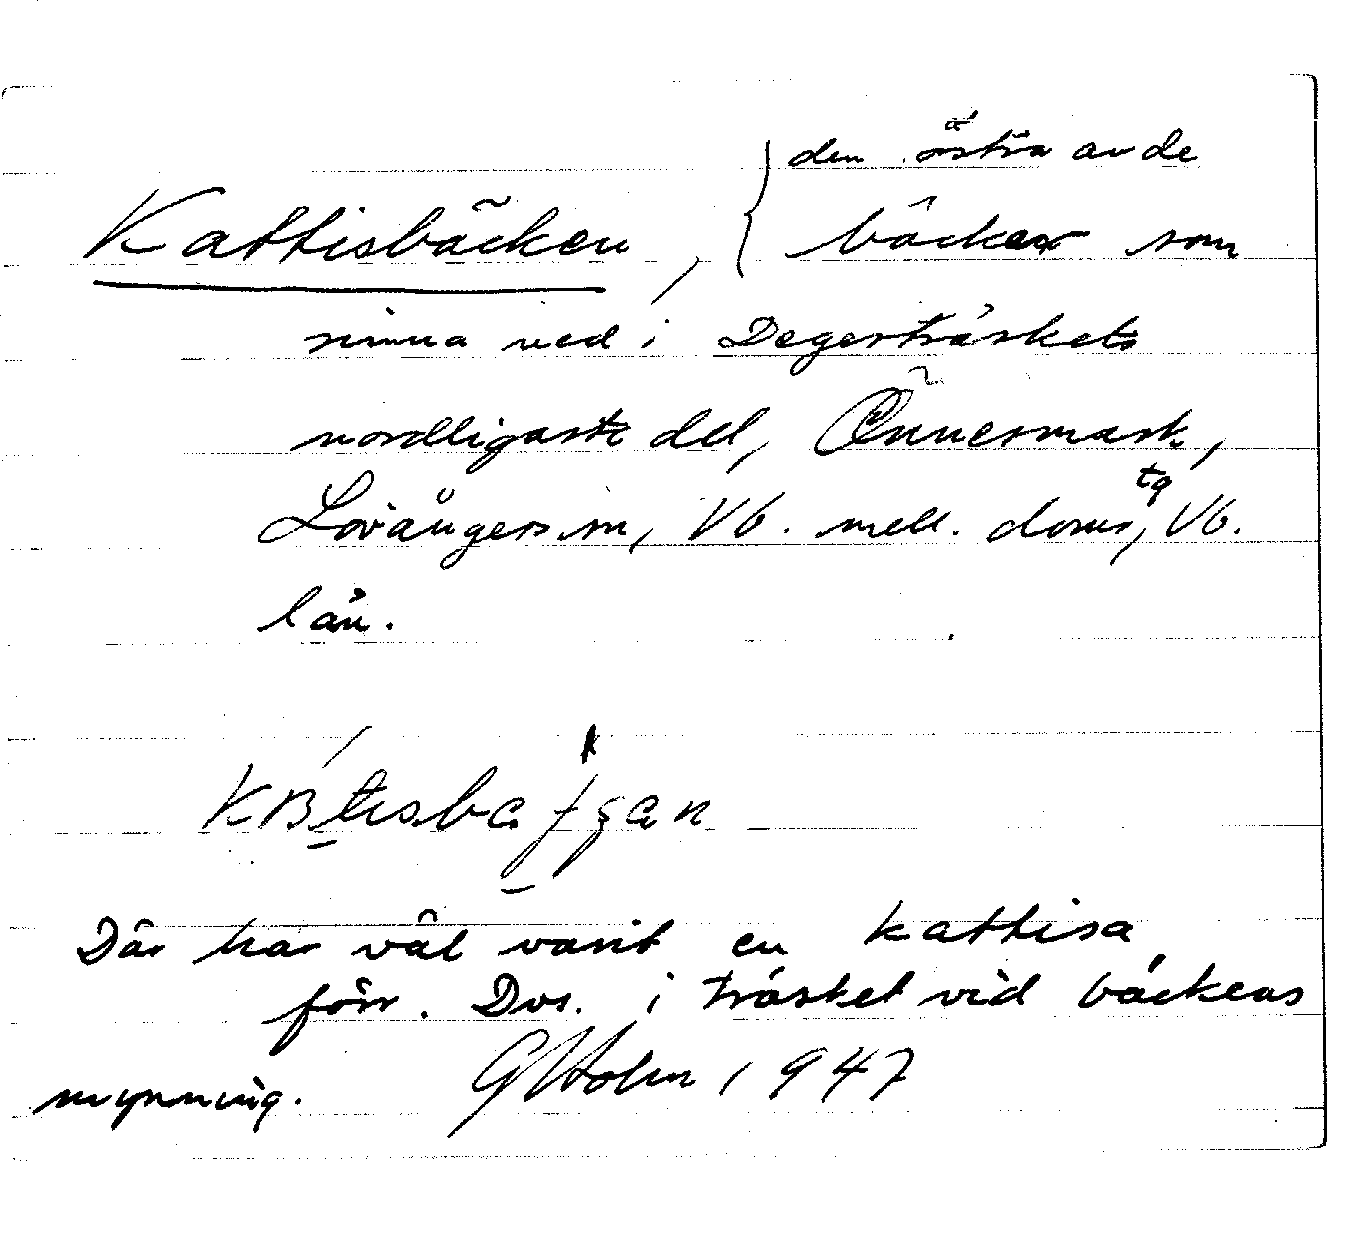 den östra av de
Kattisbäcken, bäckar som
rinna ned i Degerträskets
nordligaste del, Önnesmark,
Lövångers sn, Vb. mell. doms, tg Vb.
län.
Där har väl varit en kattisa
förr. Dvs. i träsket vid bäckens
mynning. GHolm 1947